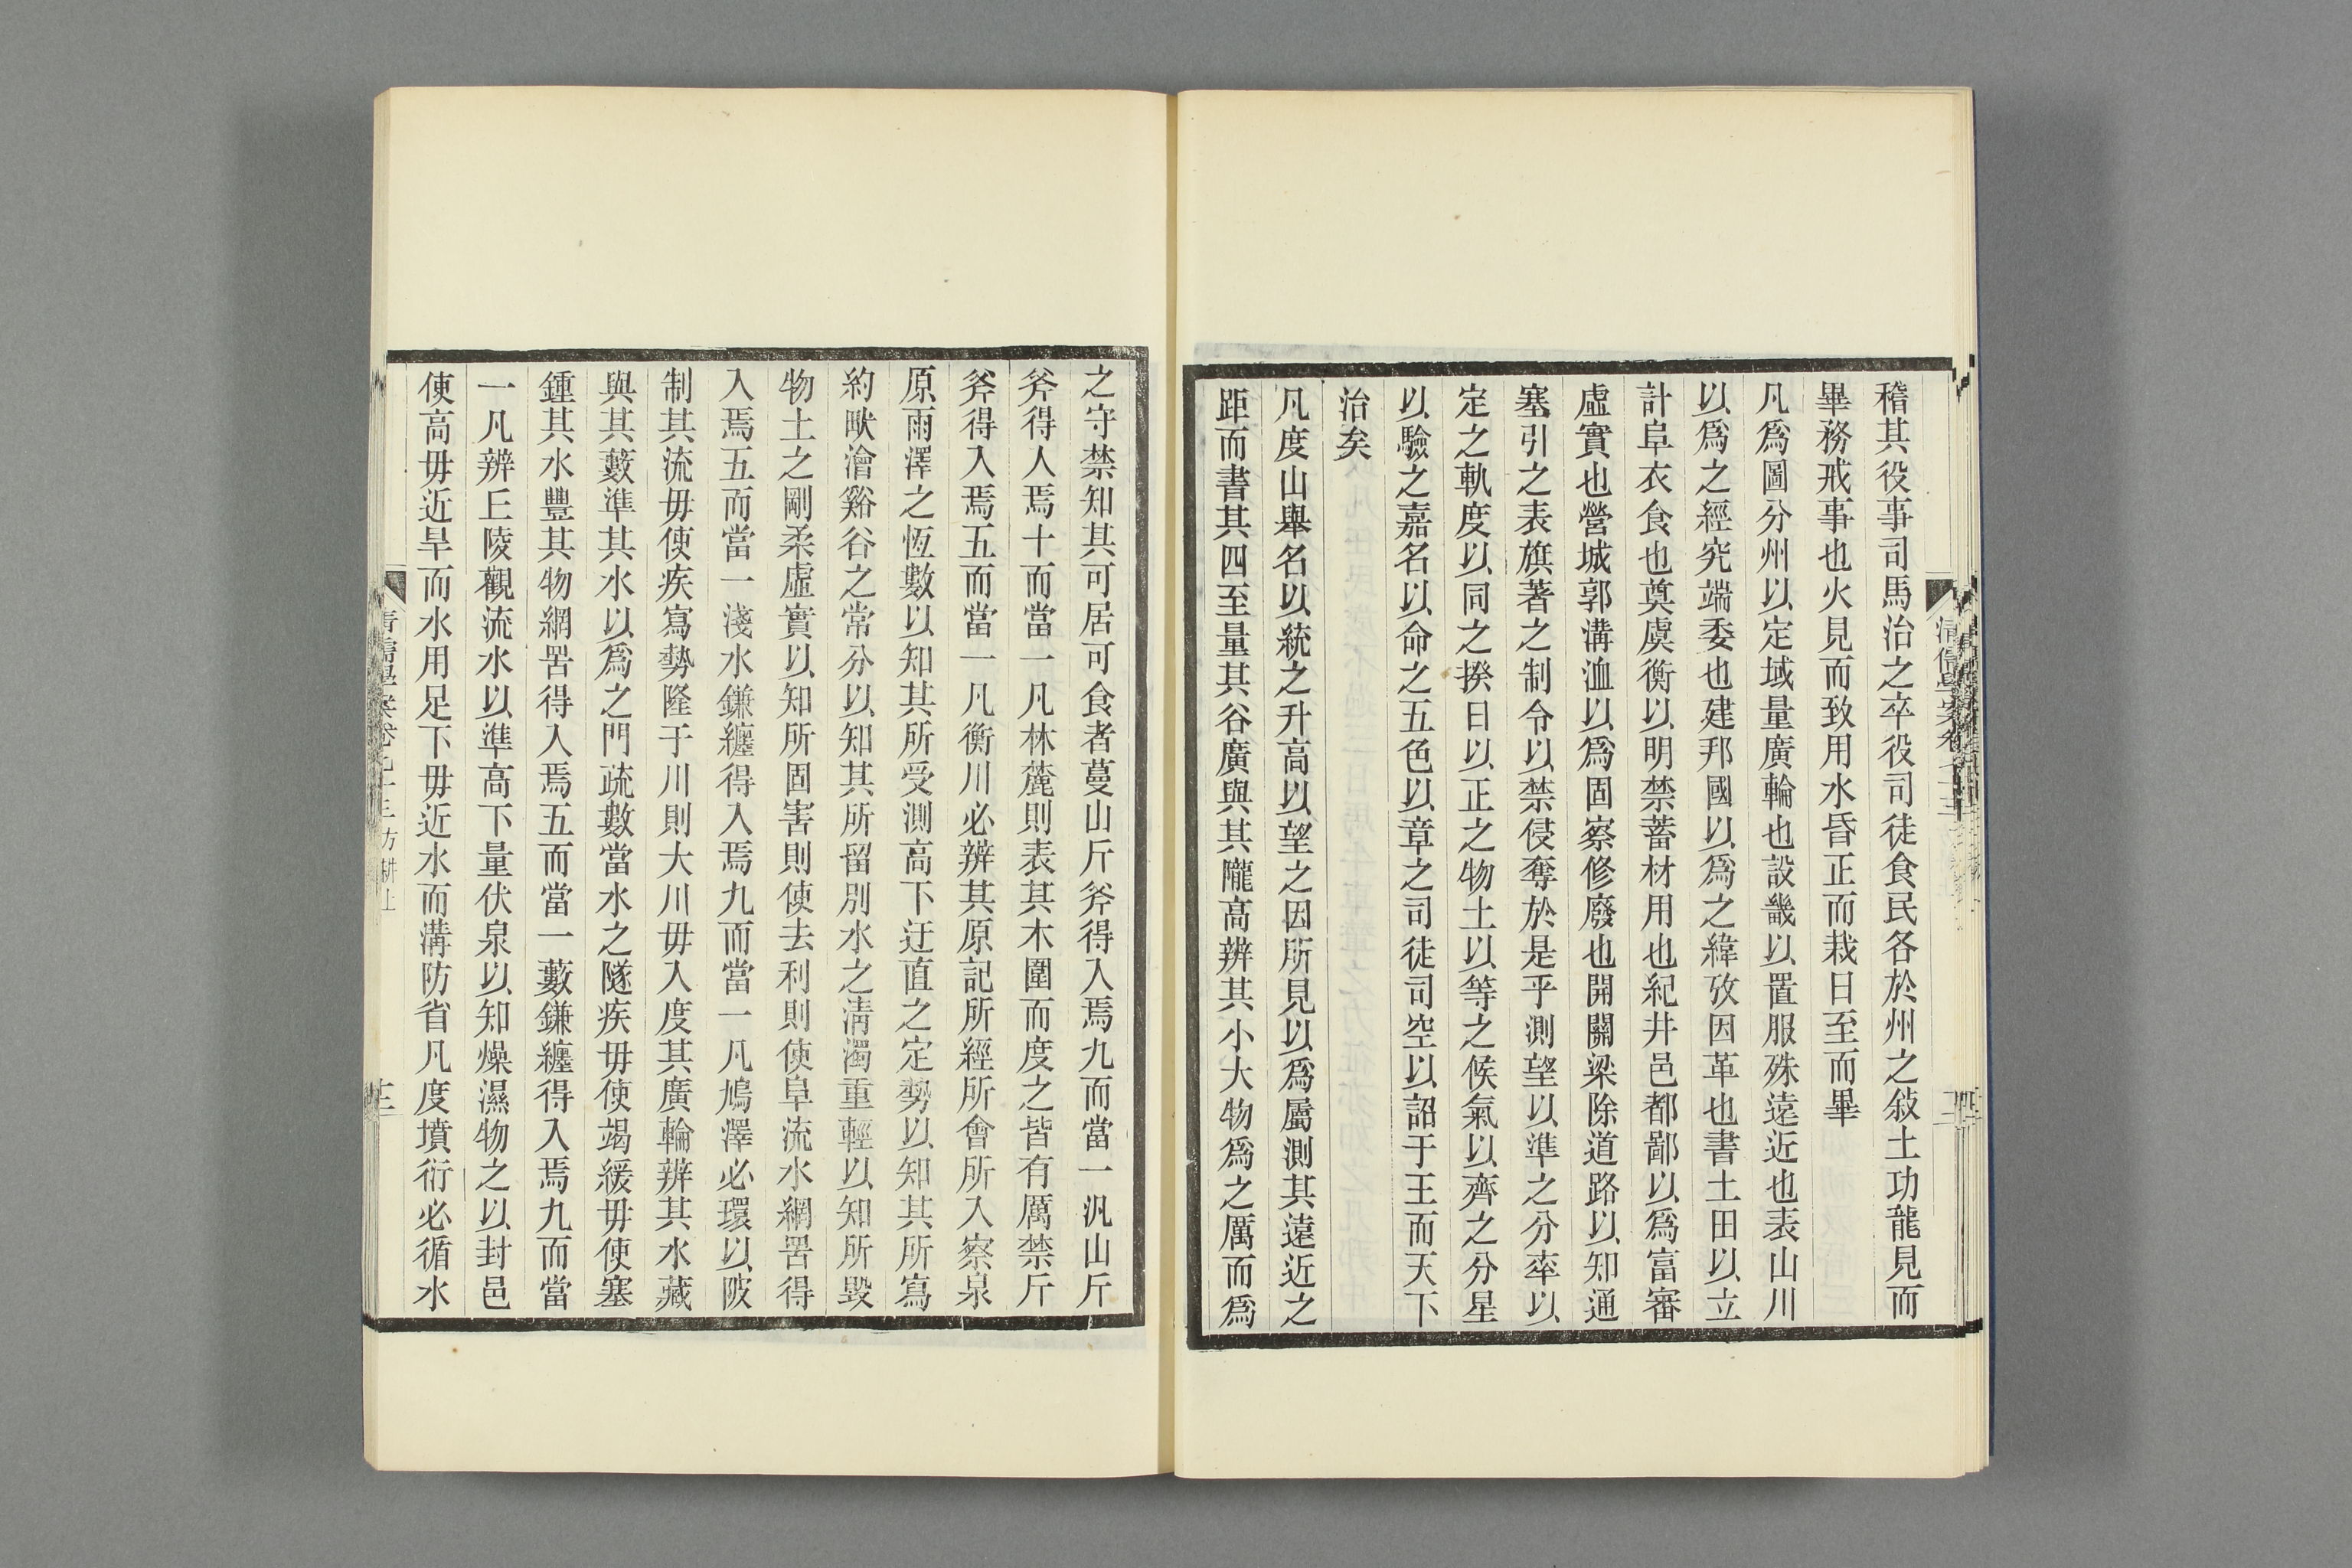 稽其役事司馬治之卒役司徒食民各於州之敍土功龍見而
畢務戒事也火見而致用水昏正而栽日至而畢
凡爲圖分州以定域量廣輪也設畿以置服殊遠近也表山川
以爲之經究端委也建邦國以爲之緯攷因革也書土田以立
計阜衣食也奠虞衡以明禁蓄材用也紀井邑都鄙以爲富審
虛實也營城郭溝洫以爲固察修廢也開關梁除道路以知通
塞引之表旗著之制令以禁侵奪於是乎測望以準之分率以
定之軌度以同之揆日以正之物土以等之候氣以齊之分星
以驗之嘉名以命之五色以章之司徒司空以詔于王而天下
治矣
凡度山舉名以統之升高以望之因所見以爲屬測其遠近之
距而書其四至量其谷廣與其隴高辨其小大物爲之厲而爲
之守禁知其可居可食者蔓山斤斧得入焉九而當一汎山斤
斧得入焉十而當一凡林麓則表其木圍而度之皆有厲禁斤
斧得入焉五而當一凡衡川必辨其原記所經所會所入察泉
原雨澤之恆數以知其所受測高下迂直之定勢以知其所寫
約畎澮谿谷之常分以知其所留別水之清濁重輕以知所毀
物土之剛柔虛實以知所固害則使去利則使阜流水網罟得
入焉五而當一淺水鎌纏得入焉九而當一凡鳩澤必環以陂
制其流毋使疾寫勢隆于川則大川毋入度其廣輪辨其水藏
與其藪準其水以爲之門疏數當水之隧疾毋使竭緩毋使塞
鍾其水豐其物網罟得入焉五而當一藪鎌纏得入焉九而當
一凡辨丘陵觀流水以準高下量伏泉以知燥濕物之以封邑
使高毋近旱而水用足下毋近水而溝防省凡度墳衍必循水